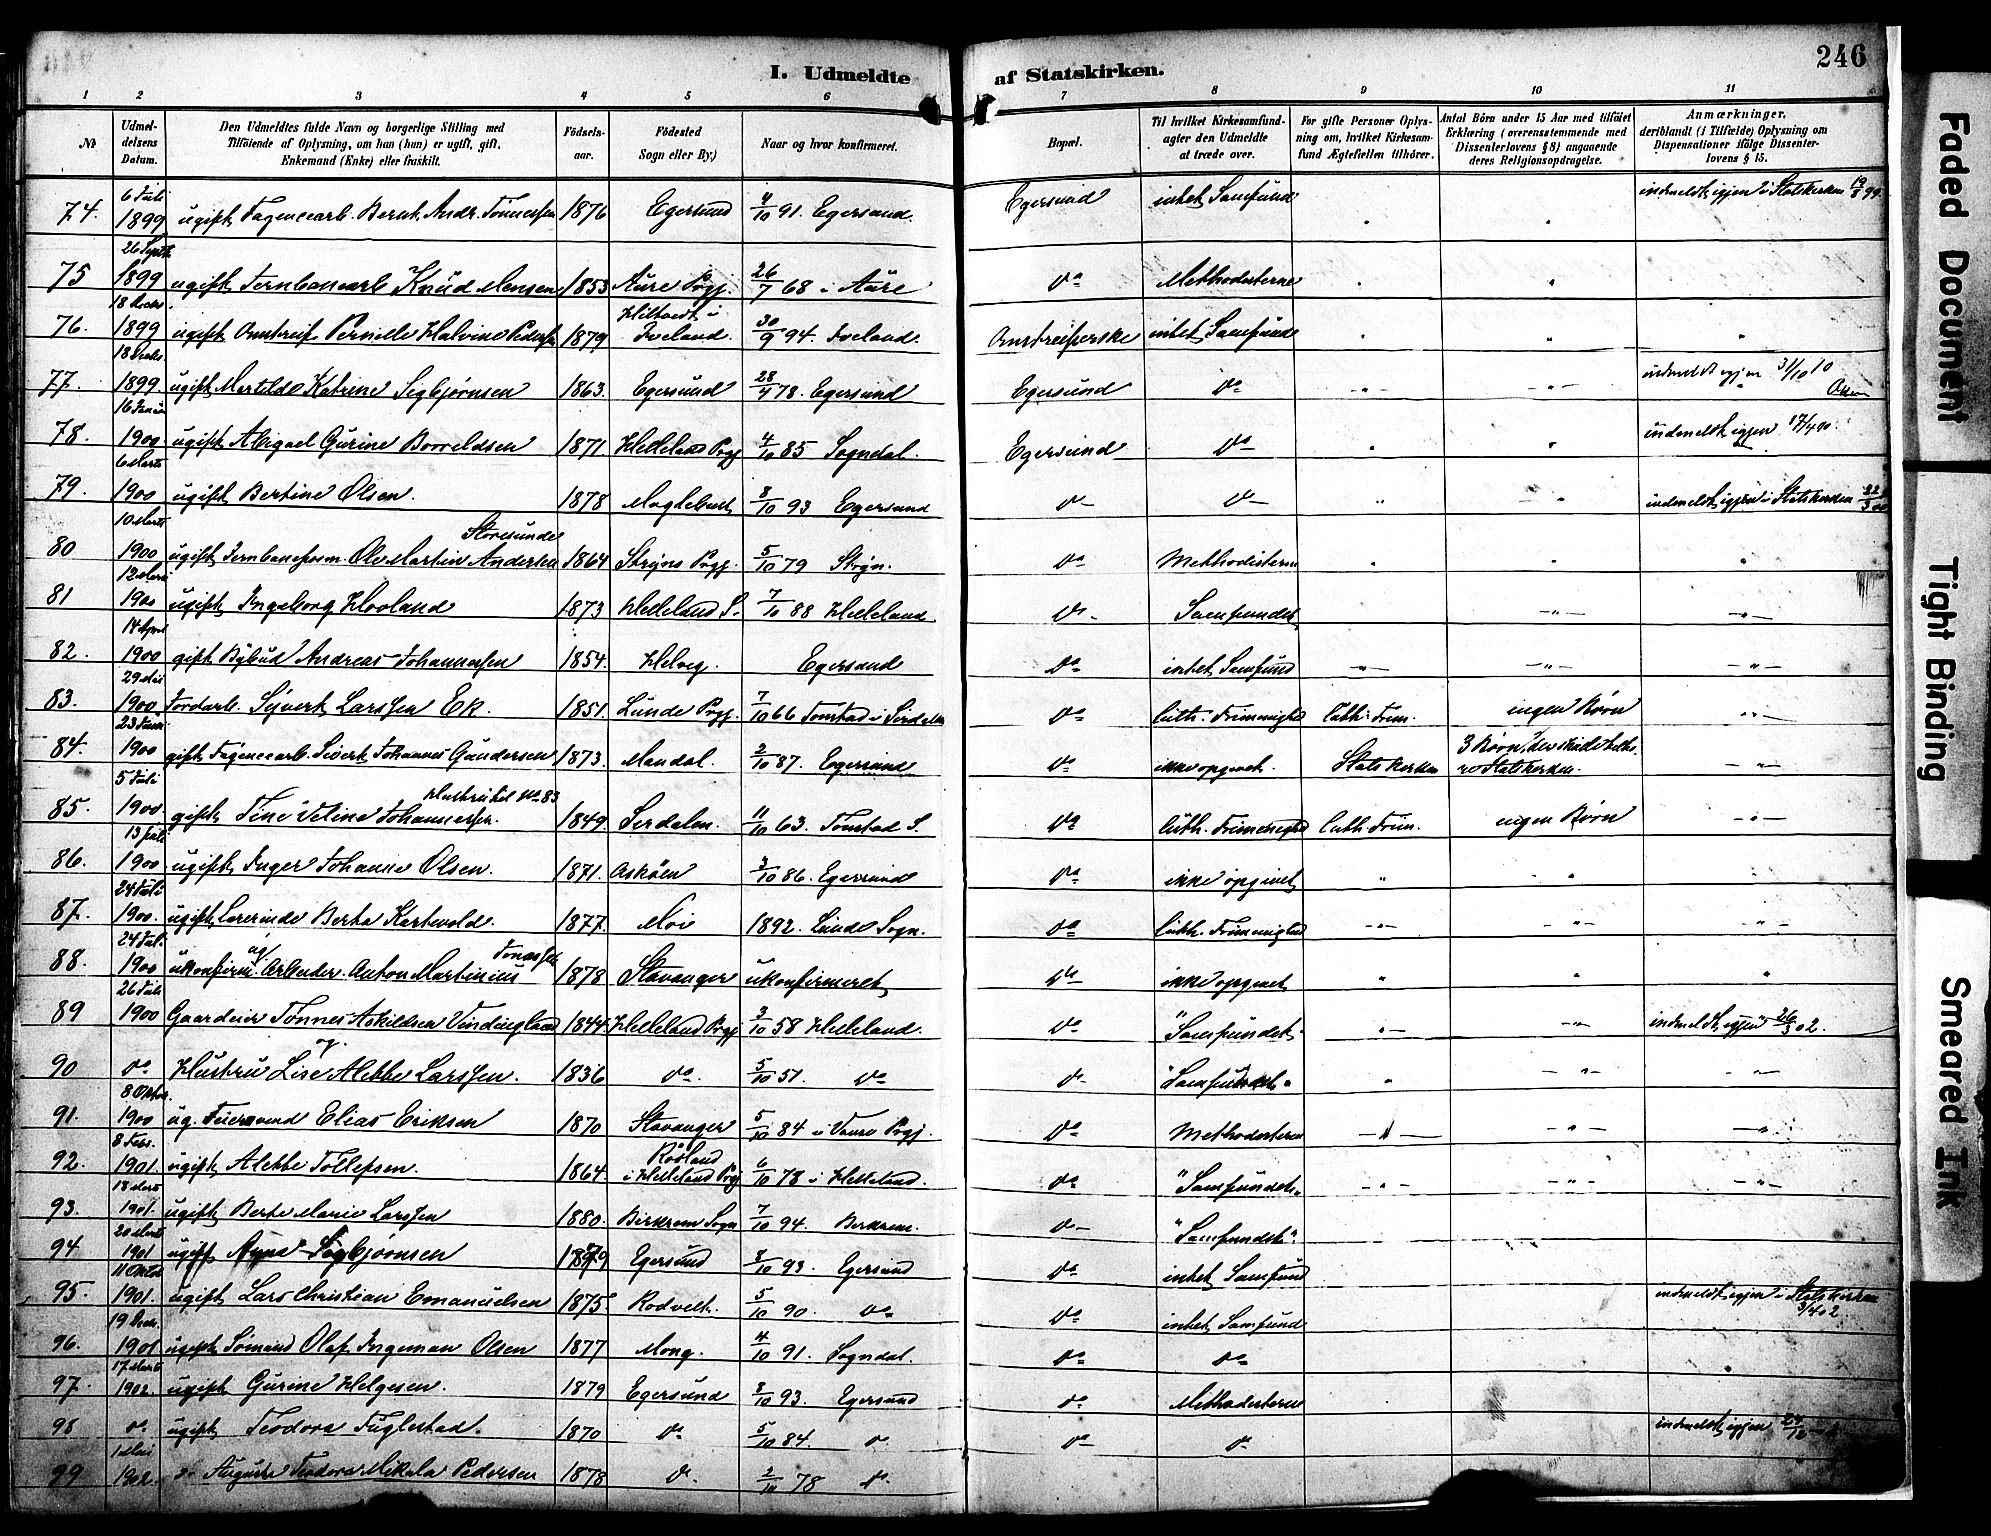 246
I. Udmeldte af Statskirken.
1 2 3 4 5 6 7 8 9 10 11
№ | Udmeldelsens Datum. | Den Udmeldtes fulde Navn og borgerlige Stilling med Tilføiende af Oplysning, om han (hun) er ugift, gift, Enkemand (Enke) eller fraskilt. | Fødselsaar. | Fødested Sogn eller By.) | Naar og hvor konfirmeret. | Bopæl. | Til hvilket Kirkesamfund agter den Udmeldte at træde over. | For gifte Personer Oplysning om, hvilket Kirkesamfund Ægtefællen tilhører. | Antal Børn under 15 Aar med tilføiet Erklæring (overensstemmende med Dissenterlovens § 8) angaaende deres Religionsopdragelse. | Anmærkninger, deriblandt (i Tilfælde) Oplysning om Dispensationer ifølge Dissenterlovens § 15.
74. 6 Juli 1899 ugift Fagencearb. Bernt Andr. Tönnessen 1876 Egersund 4/10 91. Egersund. Egersund intet Samfund " " indmeldt igjen i Statskirken 19/8 99.
75 26 Septb. 1899 ugift Jernbanearb Knud Monsen 1853 Aure Pgj. 26/7 68 i Aure do Methodisterne " "
76. 18 Decbr. 1899 ugift Omstreif Pernille Halvine Pedersen 1879 i Iveland. 30/9 94. Iveland. Omstreiferske intet Samfund " " "
77. 18 Decbr. 1899. ugift Mathilde Katrine Sigbjørnsen 1863. Egersund 28/4 78. Egersund Egersund do " " indmeldt igjen 31/10 10
78. 16 Januar 1900 ugift Abigael Gurine 1871. Helleland Pgj 4/10 85 Sogndal. Egersund do " " indmeldt igjen 17/4 00.
79. 6 Marts 1900 ugift Bertine Olsen. 1878 8/10 93 Egersund do do " " indmeldt igjen i Statskirken 22/3 00
80 10 Marts 1900 ugift Jernbaneform. Ole Martin Andersen Storesunde 1864 Stryns Pgj. 5/10 79 Stryn. do Methodisterne " " "
81 12 Marts 1900 ugift Ingeborg Hovland 1873 Helleland S. 7/10 88 Helleland. do Samfundet " "
82. 14 April 1900 gift Andreas Johannessen 1854. Helvig. Egersund do intet Samfund " " "
83. 29 Mai 1900 Jordarb. Sÿvert Larssen Ek. 1851. Lunde Pgj. 7/10 66 Tonstad i Sirdalen do luth. Frimenighed luth. Frim. ingen Børn "
84. 23 Juni 1900 gift Fagencearb. Sivert Johannes Gundersen 1873. Mandal. 2/10 87. Egersund do ikke opgivet. Statskirken 3 Børn, der skulle Statskirken. "
85. 5 Juli 1900. gift Tine Veline Johannessen. Hustru til No 83 1849. Serdalen. 11/10 63. Tonstad S. do luth. Frimenighed luth. Frim. ingen Børn "
86. 13 Juli 1900 ugift Inger Johanne Olsen. 1871. Askøen 3/10 86. Egersund do ikke opgivet " "
87. 24 Juli 1900. ugift Lærerinde Berta 1877. Moi 1892. Lunde Sogn. do luth. Frimenighed " " "
88. 24 Juli 1900 ukonfirm. ug. Arbeider. Anton Martinius Jonassen 1878 Stavanger ukonfirmeret do ikke opgivet " " "
89 26 Juli 1900 Gaardeier Tönnes Askildsen Vindingland 1844. Helleland Pgj 3/10 58 Helleland. do "Samfundet" " " indmeldt igjen 26/3 02.
90 do Hustru Lise Alette Larssen. 1836 do. 5/10 51. do do "Samfundet" " " "
91. 8 Oktbr. 1900 ug. Elias Eriksen 1870 Stavanger 5/10 84 i Pgj. do Methodisterne " " "
92. 8 Febr. 1901. ugift Alette Tollefsen. 1864. Røsland i Helleland Pgj 6/10 78 i Helleland. do "Samfundet" " " "
93. 18 Marts 1901. ugift Berte Marie Larssen 1880. Birkrem Sogn 7/10 94. Birkrem. do "Samfundet".
94 20 Marts 1901 ugift Sigbjørnsen 1879 Egersund 8/10 93. Egersund do intet Samfund
95. 11 Oktbr 1901. ugift Lars Christian Emanuelsen 1875 Rodvelt. 5/10 90. do do intet Samfund indmeldt igjen i Statskirken 3/4 02.
96. 19 Decbr. 1901 ugift Sömand Olaf Ingeman Olsen 1877 Mong. 4/10 91. Sogndal. do do
97. 17 Marts 1902. ugift Gurine Helgesen. 1879 Egersund 8/10 93. Egersund do Methodisterne "
98 do ugift Teodora Fuglestad. 1870 do 5/10 84. do do do indmeldt igjen
99 1 Mai 1902. do Auguste Teodora Mikala Pedersen 1878 do. 2/10 78 do.
Faded Document
Tight Binding
Smeared Ink